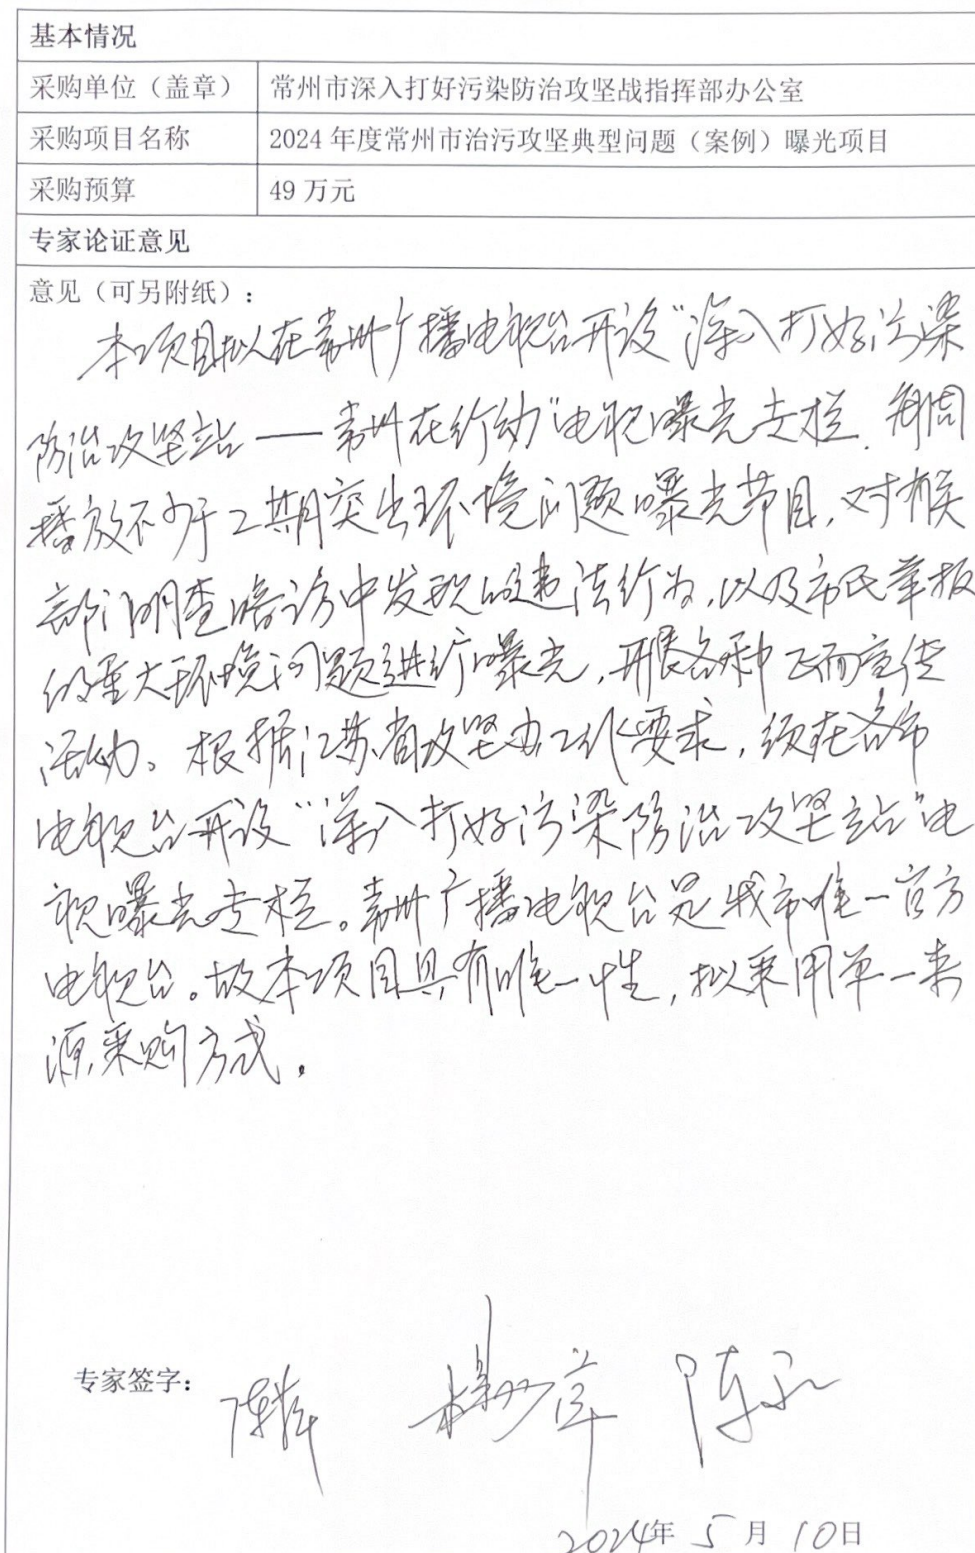 基本情况
采购单位（盖章） 常州市深入打好污染防治攻坚战指挥部办公室
采购项目名称 2024 年度常州市治污攻坚典型问题（案例）曝光项目
采购预算 49 万元
专家论证意见
意见（可另附纸）：
本项目拟在常州广播电视台开设“深入打好污染
防治攻坚站——常州在行动”电视曝光专栏．每周
播放不少于2期突出环境问题曝光节目，对相关
部门明查暗访中发现的违法行为，以及市民举报
的重大环境问题进行曝光，开展各种正面宣传
活动。根据江苏省攻坚办工作要求，须在各市
电视台开设“深入打好污染防治攻坚站”电
视曝光专栏。常州广播电视台是我市唯一官方
电视台。故本项目具有唯一性，拟采用单一来
源采购方式。
专家签字：
2024年 5 月 10日